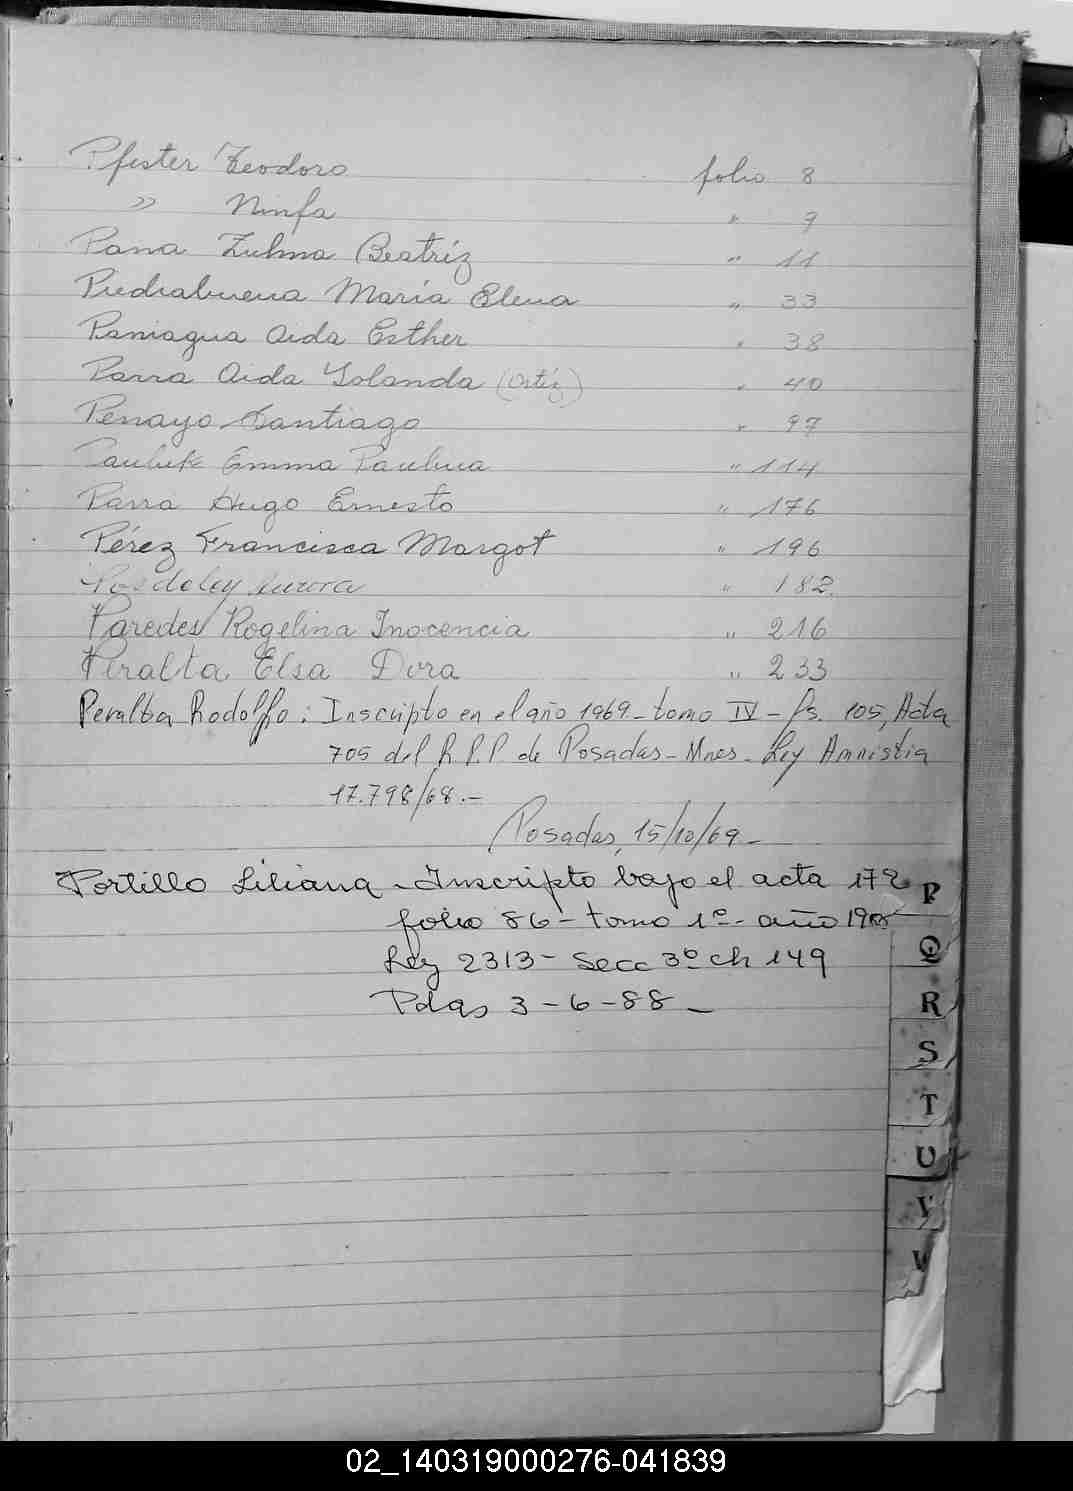 Pfister Teodoro folio 8
" Ninfa " 9
Pana Zulma Beatríz " 11
Piedrabuena María Elena " 33
Paniagua Aida Esther " 38
Parra Aida Yolanda (Ortíz) " 40
Penayo Santiago " 97
Pauluk Emma Paulina " 114
Parra Hugo Ernesto " 176
Pérez Francisca Margot " 196
Aurora " 182
Paredes Rogelina Inocencia " 216
Peralta Elsa Dora " 233
Peralta Rodolfo: Inscripto en el año 1969 - tomo IV - fs. 105, Acta
705 del R.P.P. de Posadas - Mnes - Ley Amnistia
17.798/68.-
Posadas, 15/10/69-
Portillo Liliana - Inscripto bajo el acta 172
folio 86 - tomo 1º - año
Ley 2313 - Secc 3º ch 149
Pdas 3-6-88-
P
Q
R
S
T
U
V
W
02_140319000276-041839